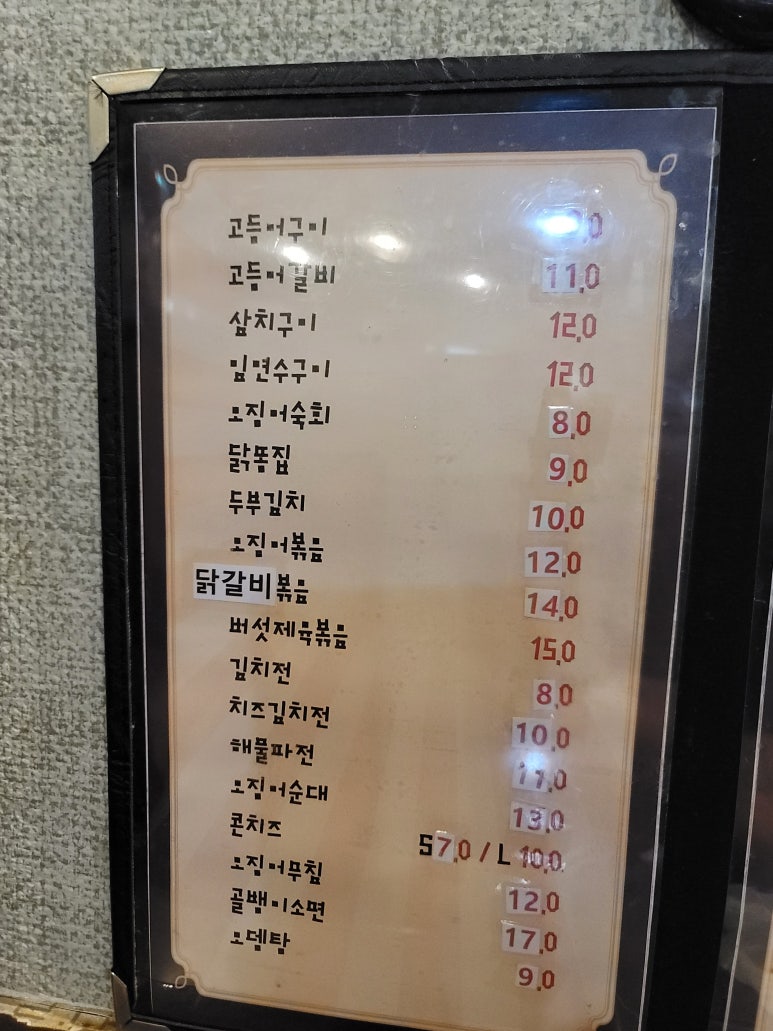 고등어구이
고등어갈비 11.0
삼치구이 12.0
임연수구이 12.0
오징어숙회 8.0
닭똥집 9.0
두부김치 10.0
오징어볶음 12.0
닭갈비볶음 14.0
버섯제육볶음 15.0
김치전 8.0
치즈김치전 10.0
해물파전 11.0
오징어순대 13.0
콘치즈 S7.0 / L 10.0
오징어무침 12.0
골뱅이소면 17.0
오뎅탕 9.0